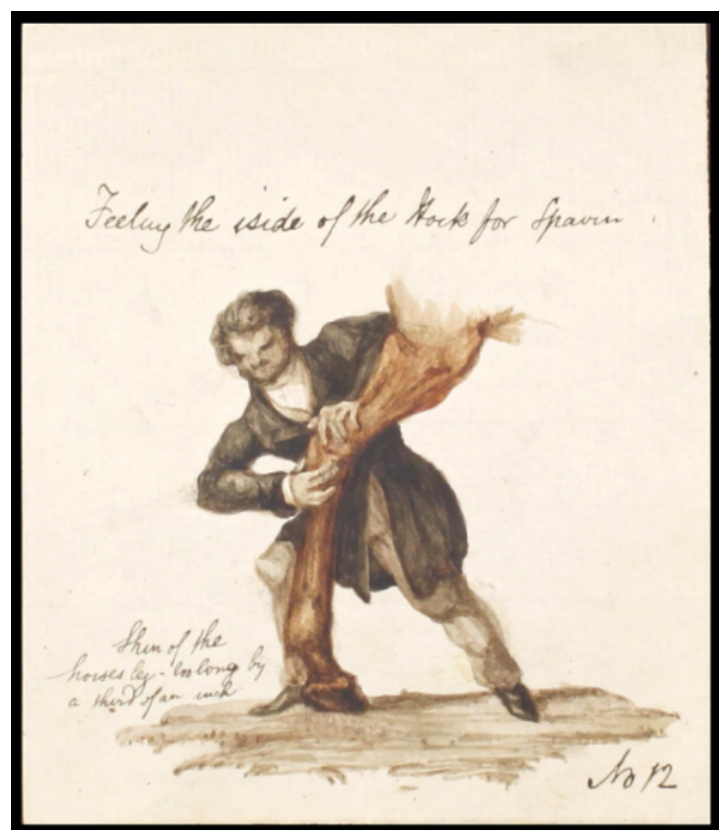 Feeling the iside of the Hock for Spavin.
Shin of the
horses leg - too long by
a third of an inch
No 12